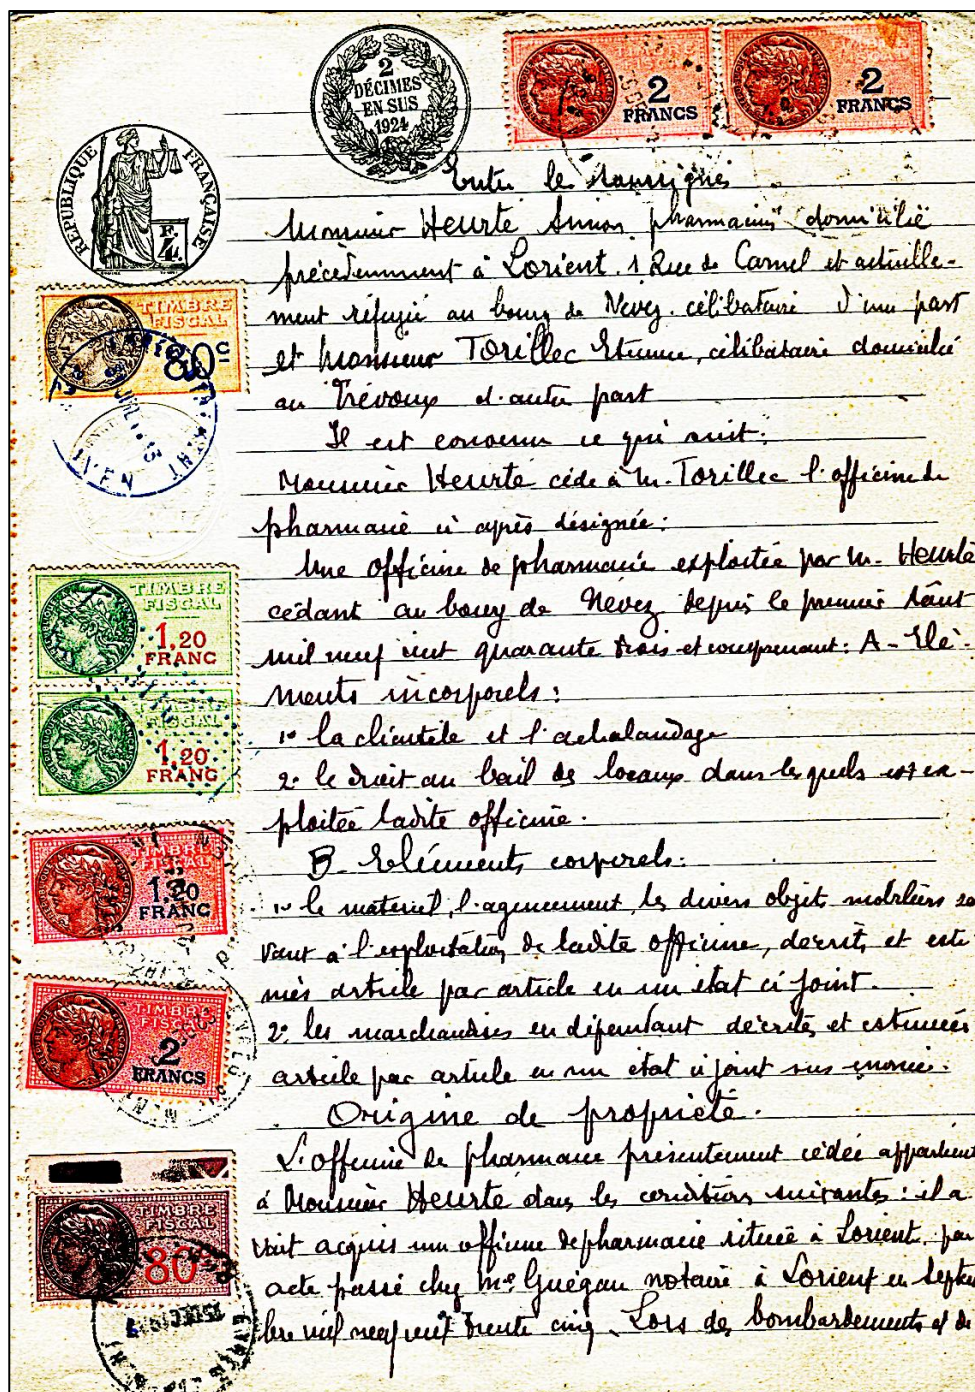 2
DÉCIMES
EN SUS
1924
TIMBRE
FISCAL
2
FRANCS
TIMBRE
FISCAL
2
FRANCS
RÉPUBLIQUE FRANÇAISE
F.
4
Entre le soussignés
Monsieur Heurté Simon pharmacien domicilié
précédemment à Lorient. 1 Rue de Carnel et actuelle-
ment réfugié au bourg de Nevez. célibataire d'une part
et Monsieur Torillec Etienne, célibataire domicilié
au Trévoux d'autre part
Il est convenu ce qui suit:
Monsieur Heurté cède à M. Torillec l'officine de
pharmacie ci après désignée:
Une officine de pharmacie exploitée par M. Heurté
cédant au bourg de Nevez depuis le premier Août
mil neuf cent quarante trois et comprenant: A - Elé-
ments incorporels:
1° la clientèle et l'achalandage
2° le droit au bail des locaux dans lesquels est ex-
ploitée ladite officine.
B. Eléments corporels.
1° le matériel, l'agencement, les divers objets mobiliers ser
vant à l'exploitation de ladite officine, décrits et esti
més article par article en un état ci joint.
2° les marchandises en dépendant décrites et estimées
article par article en un état ci joint sus énoncé.
Origine de propriété.
L'officine de pharmacie présentement cédée appartient
à Monsieur Heurté dans les conditions suivantes: il a
vait acquis une officine de pharmacie située à Lorient par
acte passé chez Me Guégan notaire à Lorient en septem
bre mil neuf cent trente cinq. Lors des bombardements et de
TIMBRE
FISCAL
80c
TIMBRE
FISCAL
1,20
FRANC
TIMBRE
FISCAL
1,20
FRANC
TIMBRE
FISCAL
1,20
FRANC
TIMBRE
FISCAL
2
FRANCS
TIMBRE
FISCAL
80